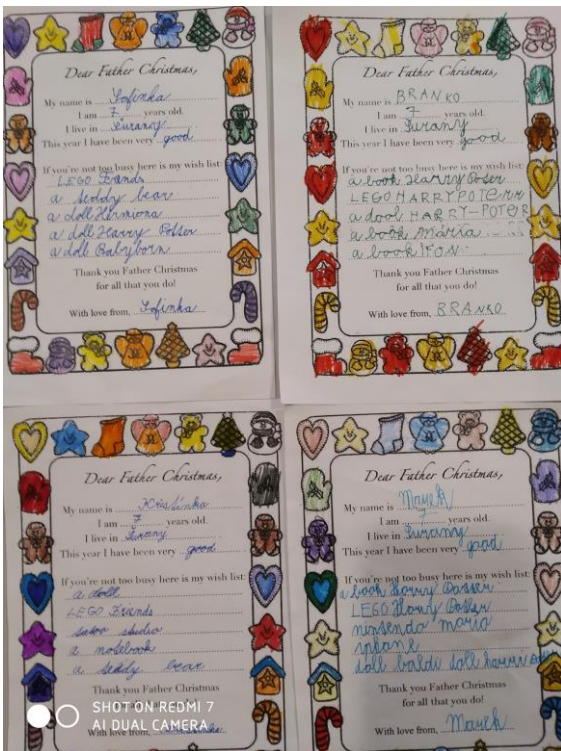 Dear Father Christmas,
My name is Sofinka
I am 7 years old.
I live in Šurany
This year I have been very good
If you're not too busy here is my wish list:
LEGO Friends
a teddy bear
a doll Hermiona
a doll Harry Potter
a doll Babyborn
Thank you Father Christmas
for all that you do!
With love from, Sofinka
Dear Father Christmas,
My name is BRANKO
I am 7 years old.
I live in Šurany
This year I have been very good
If you're not too busy here is my wish list:
a book Harry Poter
LEGO HARRY POTER
a dool HARRY-POTER
a book Maria
a book
Thank you Father Christmas
for all that you do!
With love from, BRANKO
Dear Father Christmas,
My name is Kristinka
I am 7 years old.
I live in Šurany
This year I have been very good
If you're not too busy here is my wish list:
a doll
LEGO Friends
studio
a notebook
a teddy bear
Thank you Father Christmas
for all that you do!
With love from,
Dear Father Christmas,
My name is Marek
I am 7 years old.
I live in Šurany
This year I have been very good
If you're not too busy here is my wish list:
a book Harry
LEGO Harry Potter
nintendo mario
doll baldi doll harri
Thank you Father Christmas
for all that you do!
With love from, Marek
SHOT ON REDMI 7
AI DUAL CAMERA